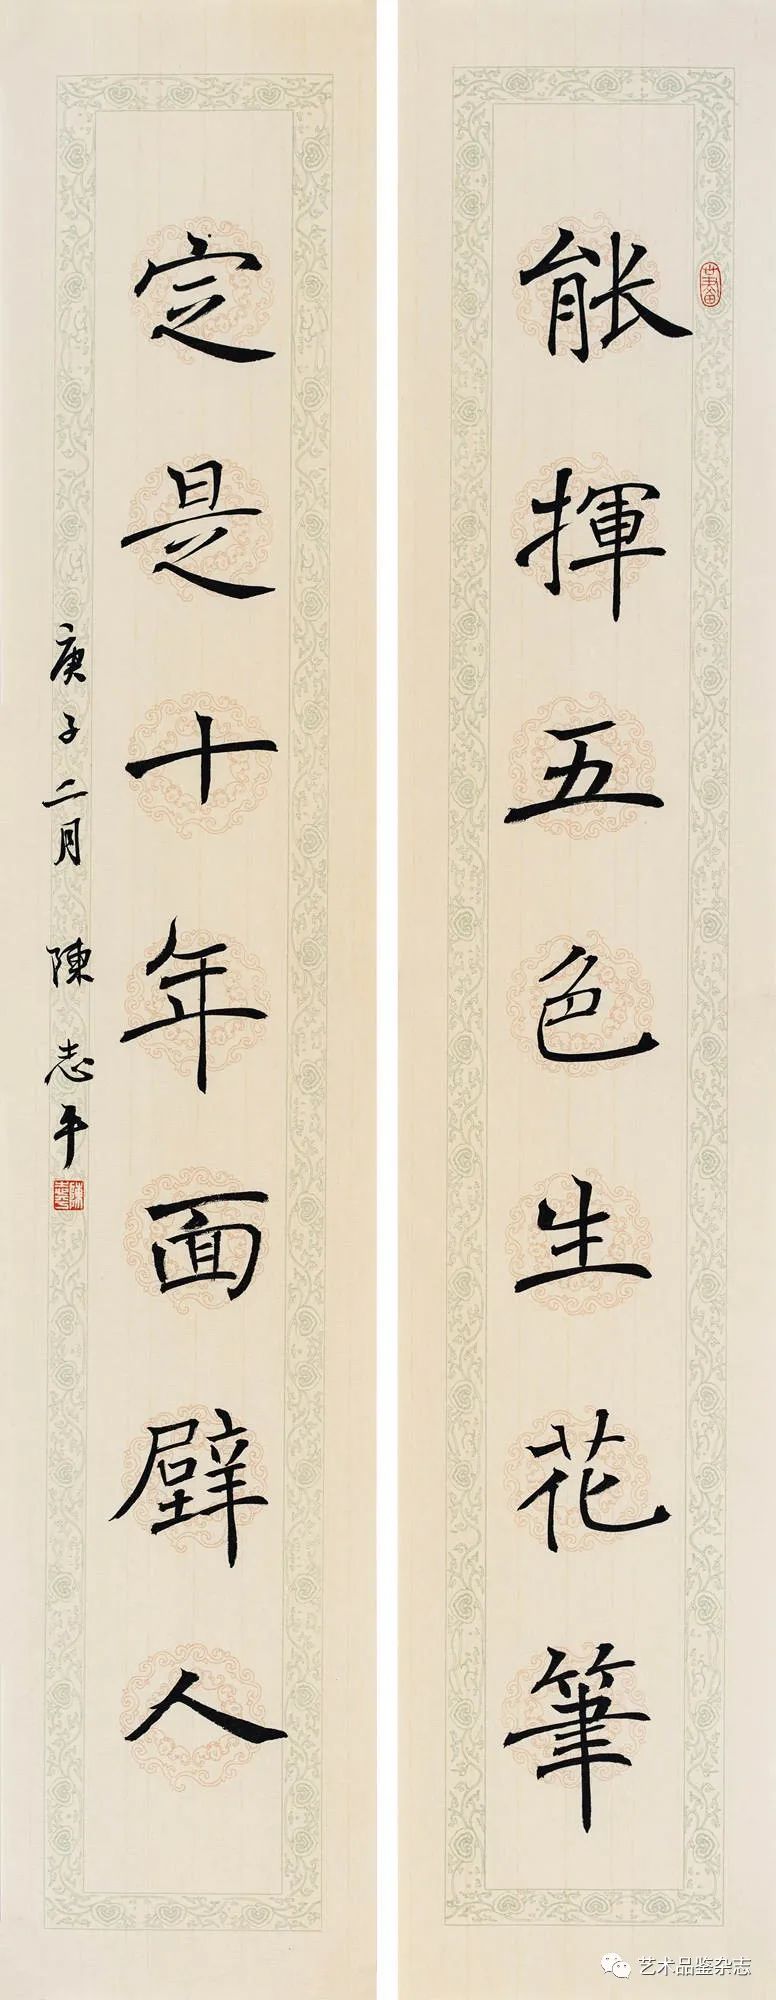 能揮五色生花筆
定是十年面壁人
庚子二月 陳志平
艺术品鉴杂志